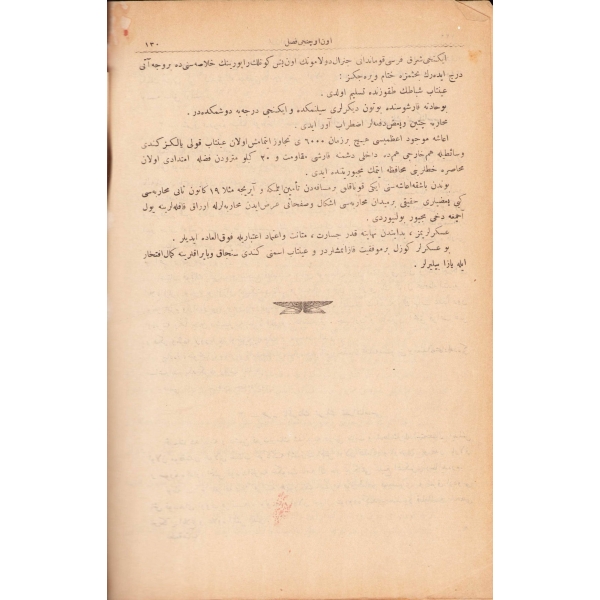 ١٣٠ اون اوچنجی فصل
ایکنجی شرق فرقه‌سی قوماندانی جنرال دولاموتك اون بش كونلك راپورینك خلاصه سنی ده بروجه آتی
درج ایده‌رك بحثمزه ختام ویره‌جكز :
عینتاب شباطك طقوزنده تسلیم اولدی .
بو حادثه قارشوسنده بوتون دیكرلری سیلنمكده و ایكنجی درجه‌یه دوشمكده‌در .
محاربه چتین و بعض دفعه‌لر اضطراب آور ایدی .
اعاشه موجود اعظمیسی هیچ بر زمان ٦٠٠٠ ی تجاوز ایتمامش اولان عینتاب قولی یالكز كندی
وسائطیله هم خارجی هم ده داخلی دشمنه قارشی مقاومت و ٢٠ كیلو مترودن فضله امتدادی اولان
محاصره خطلرینی محافظه ایتمك مجبوریتنده ایدی .
بوندن باشقه اعاشه‌سنی ایكی قوناقلق بر مسافه‌دن تأمین ایتمك و آیریجه مثلا ١٩ كانون ثانی محاربه‌سی
كبی بعضیلری حقیقی بر میدان محاربه‌سی اشكال و صفحاتی عرض ایدن محاربه‌لرله ارزاق قافله‌لرینه یول
آچمغه دخی مجبور بولنیوردی .
عسكرلریمز ، بدایتدن نهایته قدر جسارت ، متانت و اعتماد اعتباریله فوق العاده ایدیلر .
بو عسكرلر كوزل بر موفقیت قازانمشلردر و عینتاب اسمنی كندی سنجاق و بایراقلرینه كمال افتخار
ایله یازا بیلیرلر .